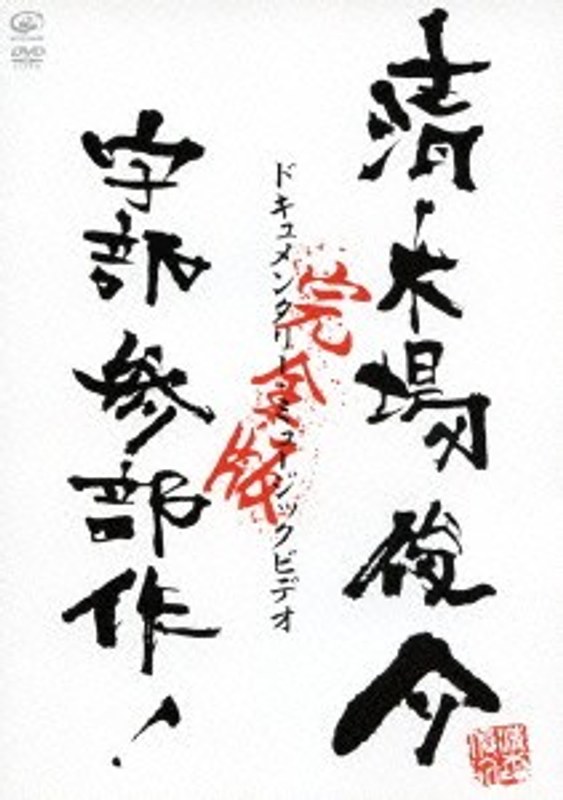 清木場俊介
ドキュメンタリー・ミュージックビデオ
完全版
宇部参部作!
DVD